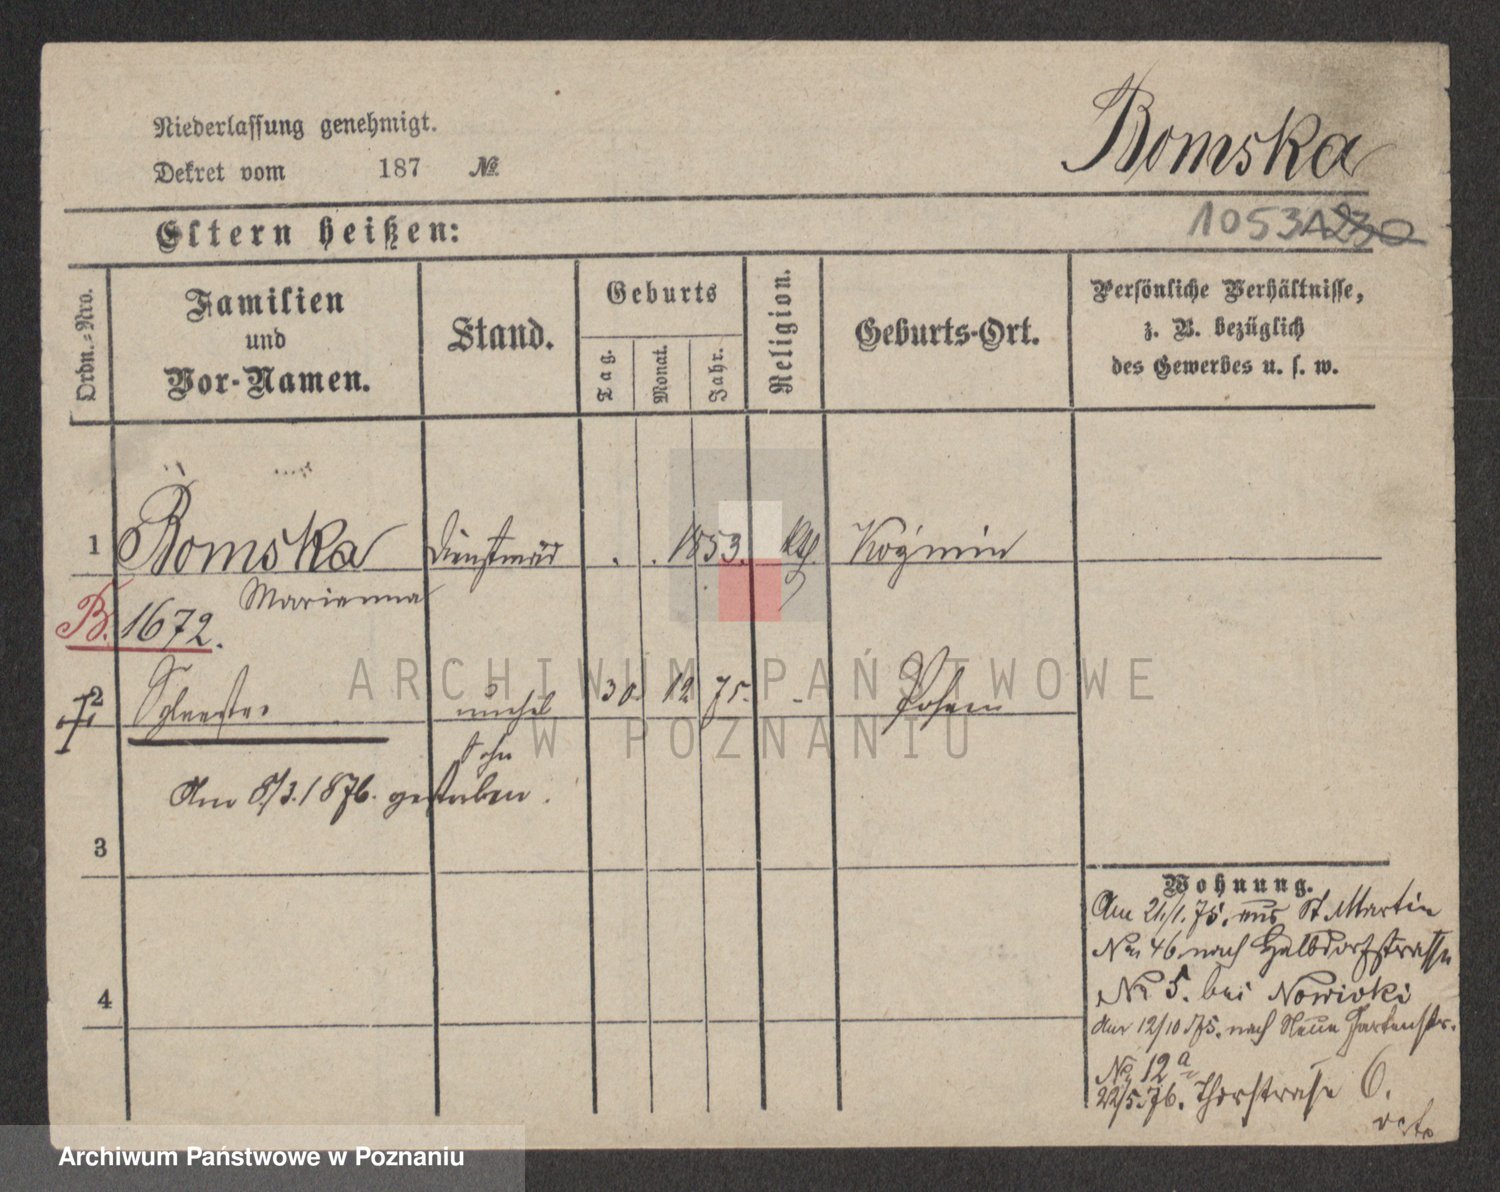 Niederlassung genehmigt.
Dekret vom 187 №
Bomska
Eltern heißen:
1053
Ordn.-Nro.
Familien
und
Vor-Namen.
Stand.
Geburts
Tag.
Monat.
Jahr.
Religion.
Geburts-Ort.
Persönliche Verhältnisse,
z. B. bezüglich
des Gewerbes u. s. w.
1 Bomska Dienstmäd . . 1853. kth. Kozmin
Marianna
B. 1672.
2 Sylvester unehel 30. 12 75. - Posen
Sohn
Am 8/3. 1876. gestorben.
3
4
Wohnung.
Am 21/1. 75. aus St Martin
No 46 nach Halbdorfstrasse
Nr 5. bei Nowicki
Am 12/10 75. nach Neue Gartenstr.
No 12a
22/5. 76. Thorstrasse 6.
ARCHIWUM PAŃSTWOWE
W POZNANIU
Archiwum Państwowe w Poznaniu